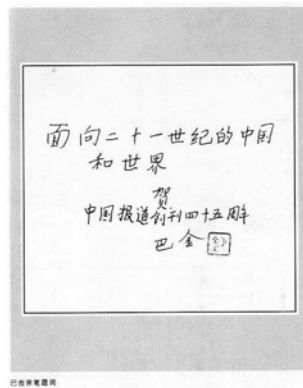 面向二十一世纪的中国
和世界
贺
中国报道创刊四十五周年
巴金
巴金亲笔题词